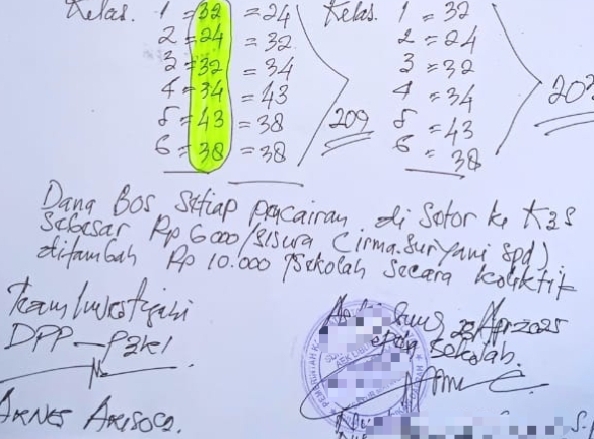 Kelas. 1 = 32 = 24 Kelas. 1 = 32
2 = 24 = 32 2 = 24
3 = 32 = 34 3 = 32
4 = 34 = 43 4 = 34
5 = 43 = 38 209 5 = 43
6 = 38 = 38 6 = 38
Dana Bos Setiap pencairan di Setor ke K3S
Sebesar Rp 6000/Siswa (Irma.Suryani Spd)
ditambah Rp 10.000 /Sekolah Secara kolektif
Team Investigasi
DPP
2025
Sekolah.
PEMERINTAH
ARNES ARISOCA.